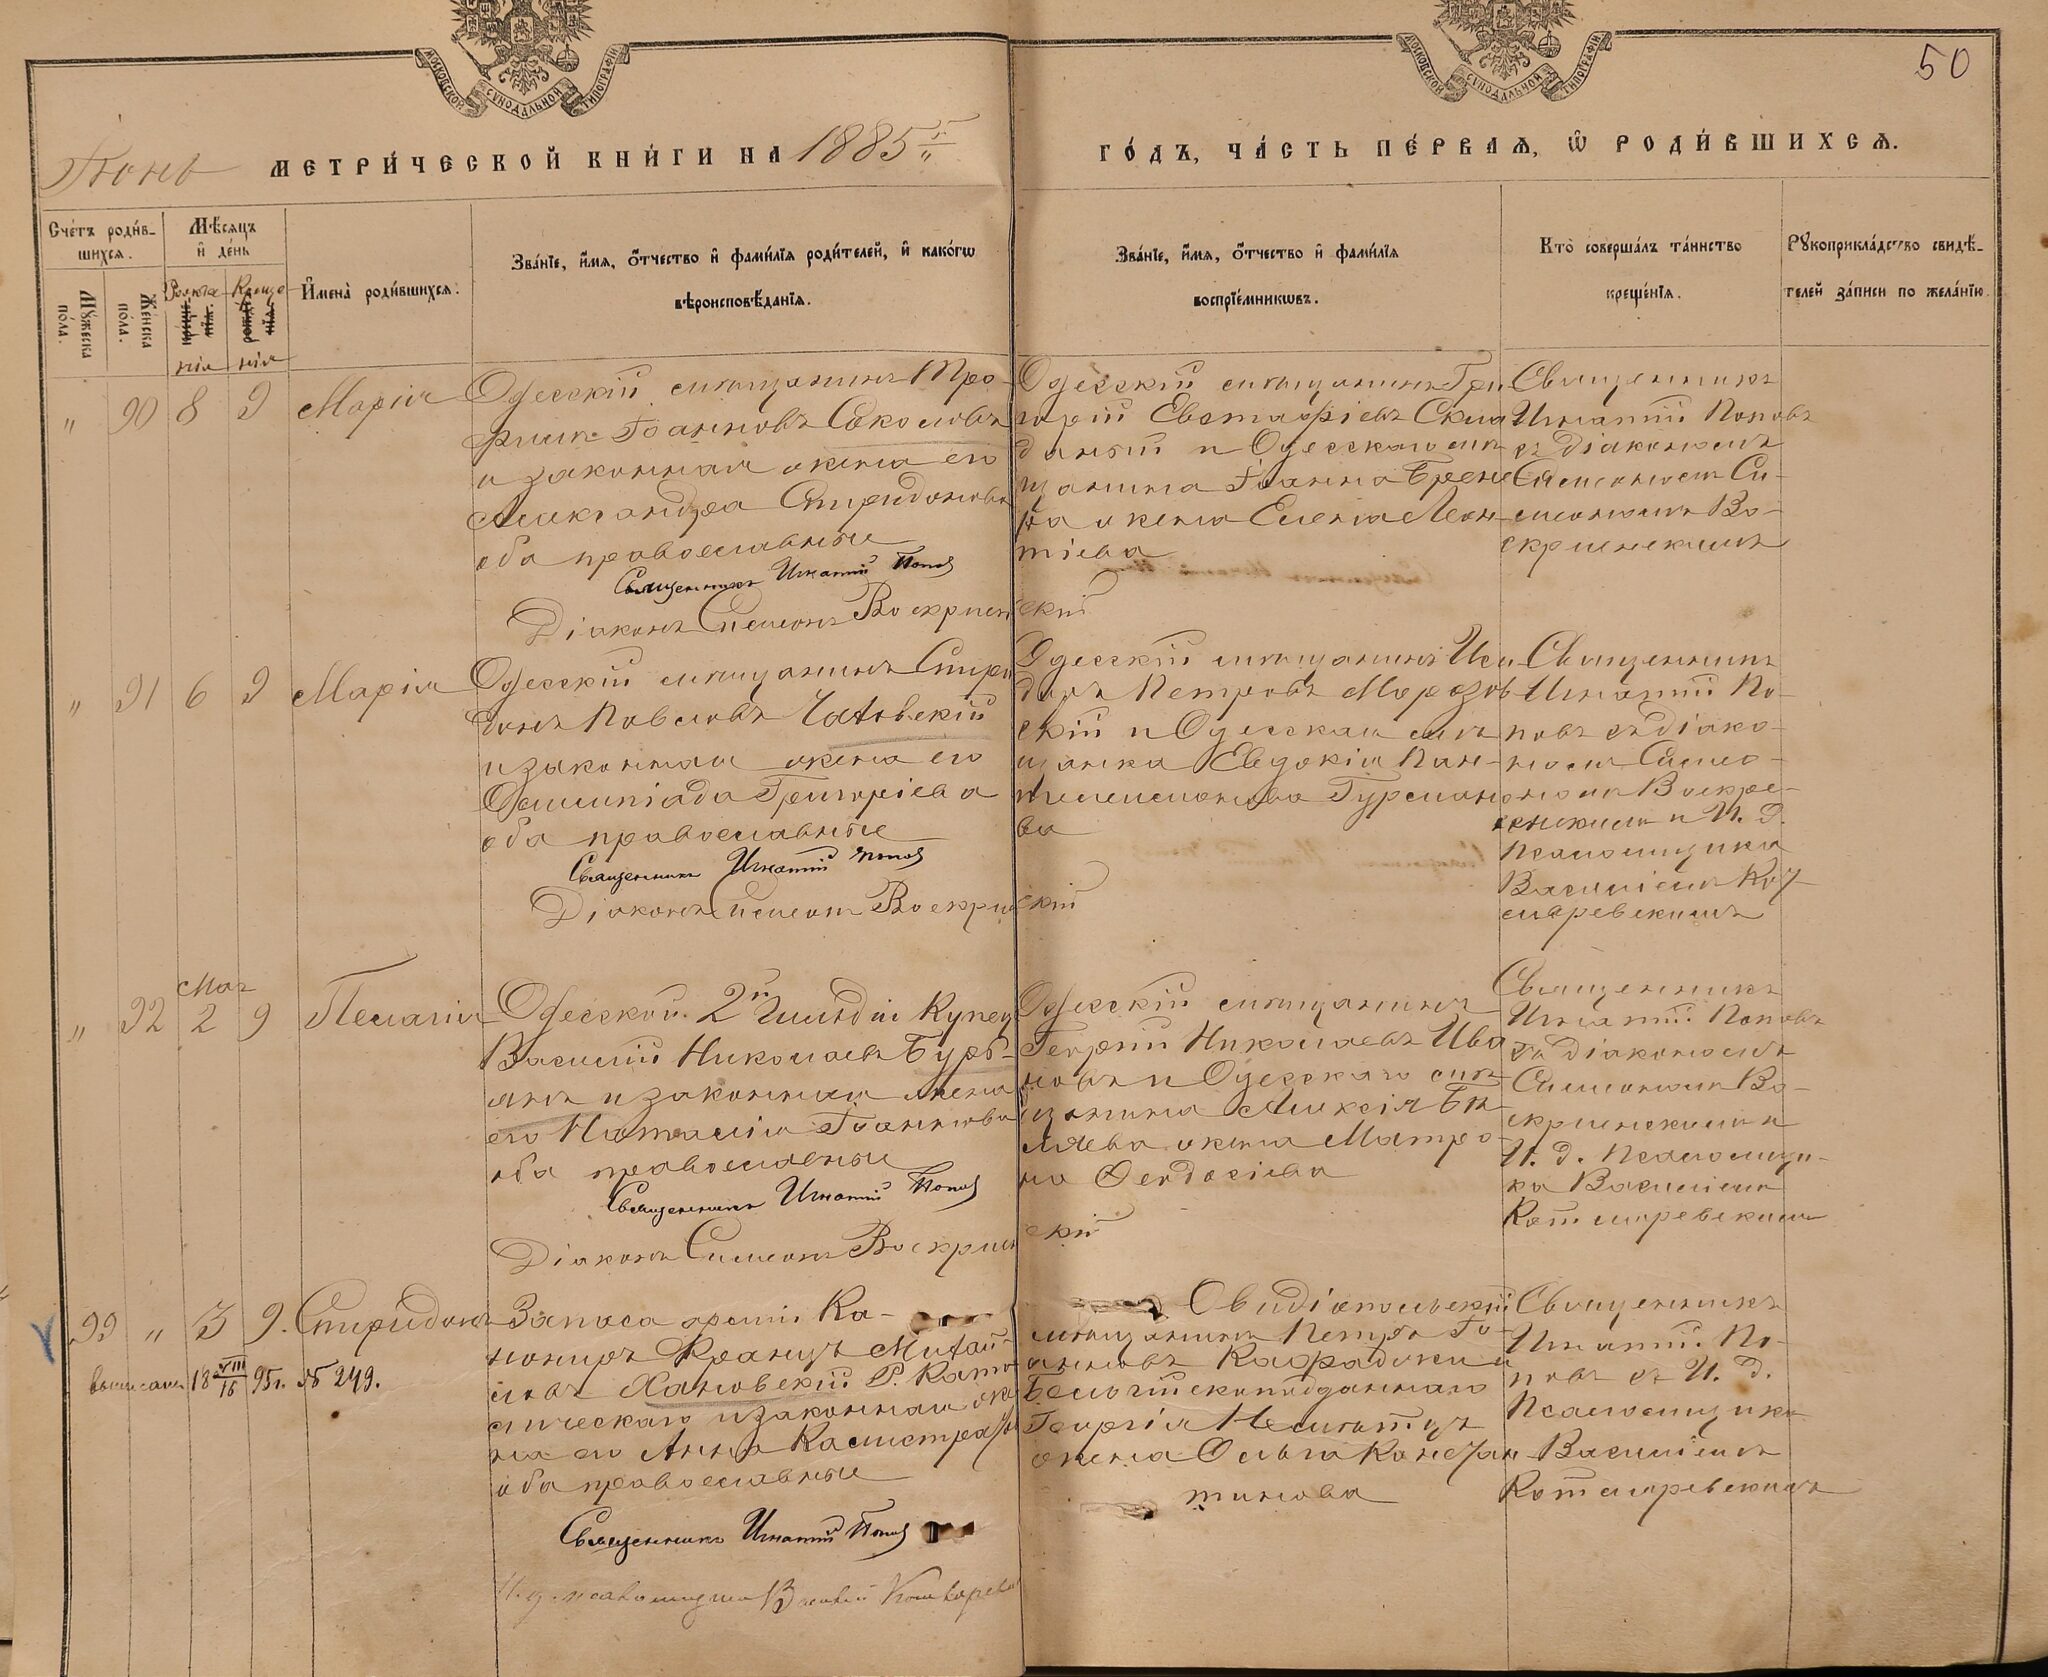 МОСКОВСКОЙ СѴНОДАЛЬНОЙ ТИПОГРАФІИ
МОСКОВСКОЙ СѴНОДАЛЬНОЙ ТИПОГРАФІИ
50
Іюнь МЕТРИ́ЧЕСКОЙ КНИ́ГИ НА 1885 г.
ГО́ДЪ, ЧА́СТЬ ПЕ́РВАЯ, Ѿ РОДИ́ВШИХСЯ.
Сче́тъ роди́в-
шихся.
Му́жеска по́ла.
Же́нска по́ла.
Мѣ́сяцъ
и҆ де́нь
Рожде
нія
Креще
нія
И҆мена̀ роди́вшихся.
Зва́нїе, и҆́мя, о҆́тчество и҆ фами́лїя роди́телей, и҆ како́гѡ
вѣроисповѣ́данїя.
Зва́нїе, и҆́мя, о҆́тчество и҆ фами́лїя
воспрїе́мникѡвъ.
Кто̀ соверша́лъ та́инство
креще́нїя.
Рꙋкоприкла́дство свидѣ́-
телей за́писи по жела́нїю.
" 90 8 9 Марія
Одесскій мѣщанинъ Тро-
фимъ Іоанновъ Соколовъ
и законная жена его
Александра Спиридонова
оба православные
Священникъ Игнатій Попов
Діаконъ Симеонъ Воскресенскій
Одесскій мѣщанинъ Гри
горій Евстафіевъ Скла
дный и Одесскаго мѣ
щанина Іоанна
жена Елена Леон-
тіева
Священникъ
Игнатій Поповъ
съ діакономъ
Симеономъ Си-
меономъ Во-
скресенскимъ
" 91 6 9 Марія
Одесскій мѣщанинъ Спири
донъ Павловъ Чатовскій
и законная жена его
Олимпіада Григоріева
оба православные
Священникъ Игнатій Попов
Діаконъ Симеонъ Воскресенскій
Одесскій мѣщанинъ Иси
доръ Петровъ Морозов
скій и Одесская мѣ
щанка Евдокія Пан-
телеимонова
ва
Священникъ
Игнатій По-
повъ съ діако-
номъ Симео-
номъ Воскре-
сенскимъ и И. д.
Псаломщика
Василіемъ Кот
ляревскимъ
" 92 Мая 2 9 Пелагія
Одесской 2й Гильдіи Купец
Василій Николаевъ Бурь-
янъ и законная жена
его Наталія Іоаннова
оба православные
Священникъ Игнатій Попов
Діаконъ Симеонъ Воскресенскій
Одесскій мѣщанинъ
Георгій Николаевъ Ива
новъ и Одесскаго мѣ-
щанина Алексія Бѣ-
ляева жена Матро-
на Феодосіева
Священникъ
Игнатій Поповъ
съ діакономъ
Симеономъ Во-
скресенскимъ и
И. д. Псаломщи-
ка Василіемъ
Котляревскимъ
99 " 3 9. Спиридонъ
выписан 18 VIII/16 95 г. № 249.
Запаса арміи Ка-
нониръ Францъ Михаи-
ловъ Хановскій Р. Като
лическаго и законная же
на его Анна Калистрат
оба православные
Священникъ Игнатій Попов
И. д. псаломщика Василій Котляревс
Овидіопольскій
мѣщанинъ Петръ Іо-
анновъ и
Бельгійскоподданнаго
Георгія
жена Ольга Констан
тинова
Священникъ
Игнатій По-
повъ съ И. д.
Псаломщика
Василіемъ
Котляревскимъ